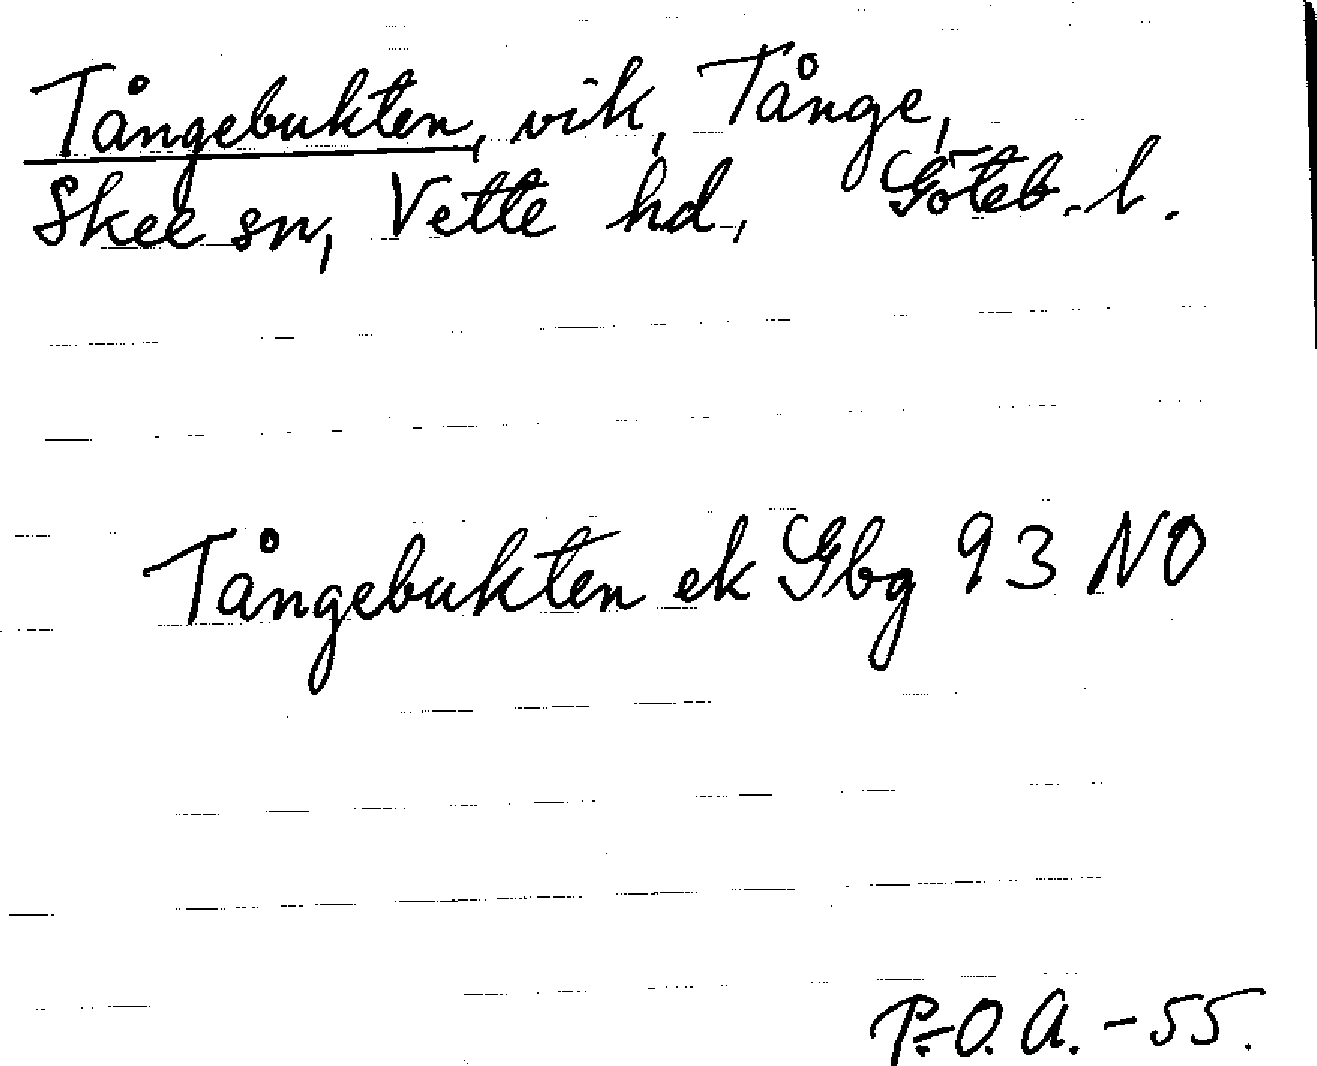 Tångebukten, vik, Tånge,
Skee sn, Vette hd, Göteb. l.
Tångebukten ek Gbg 93 NO
P.-O. A. - 55.